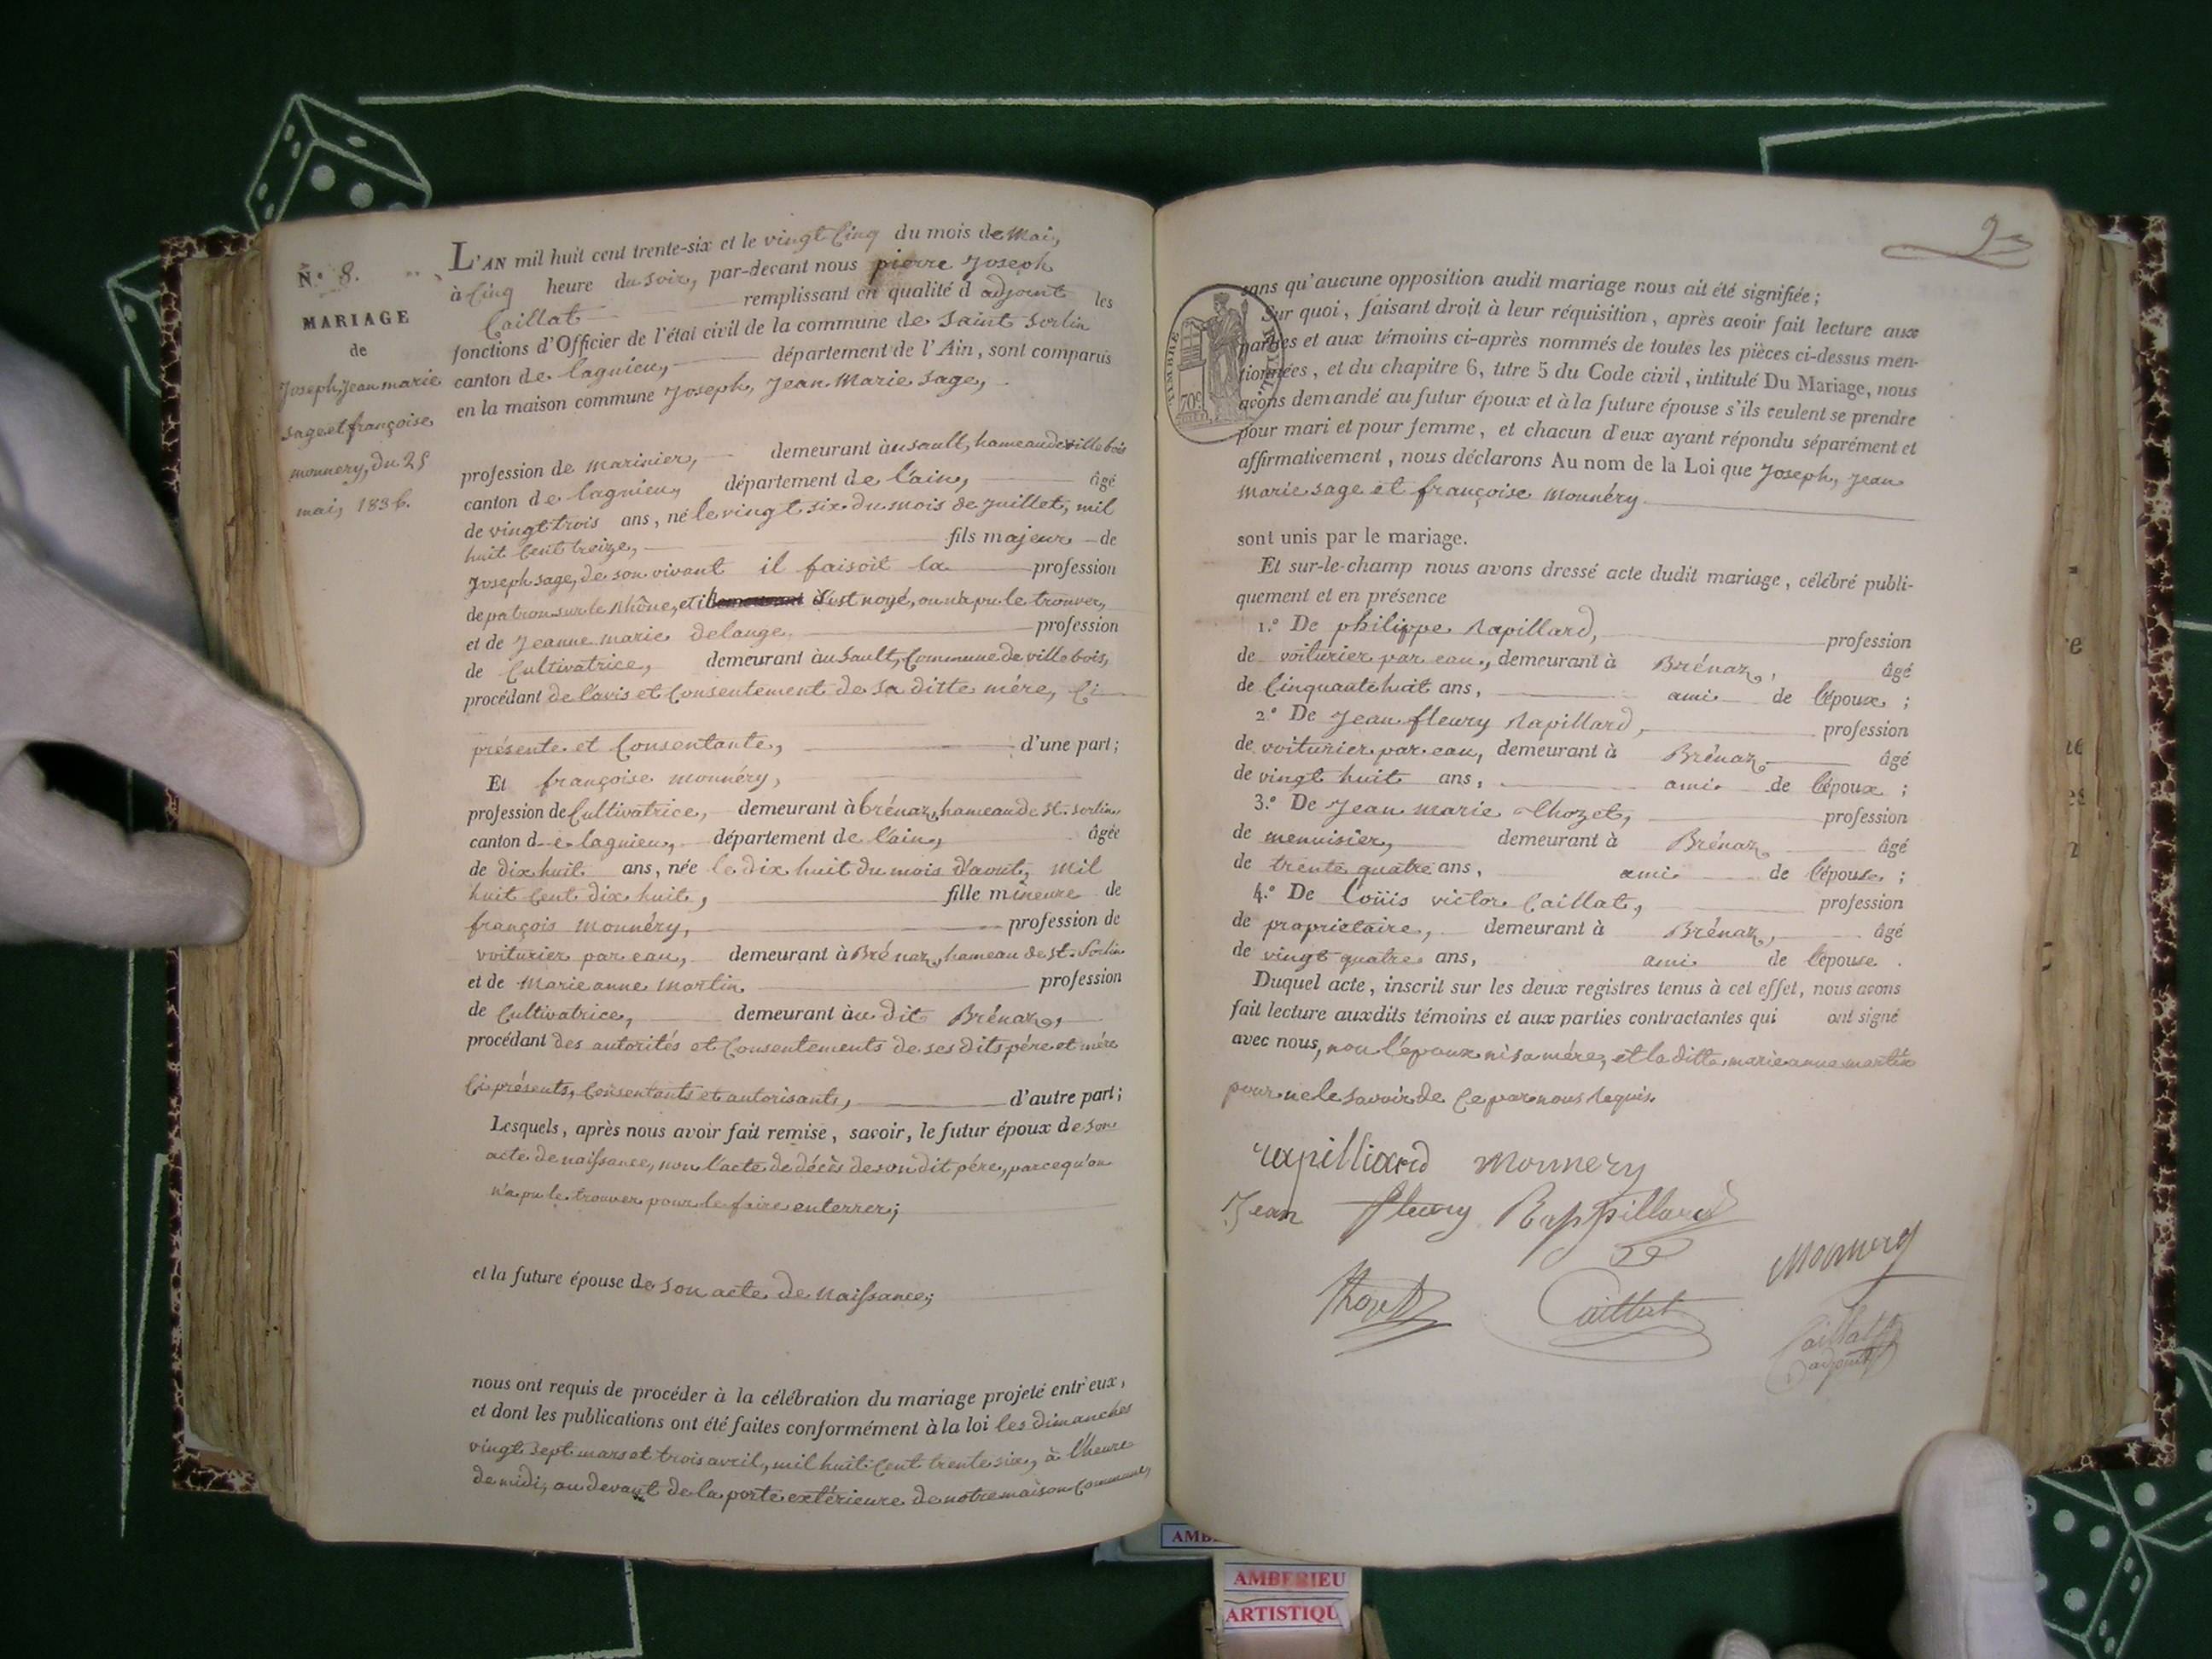 N.º 8.
MARIAGE
de
Joseph, Jean marie
sage et françoise
monnery, du 25
mai, 1836.
L'AN mil huit cent trente-six et le vingt cinq du mois de Mai,
à cinq heure du soir, par-devant nous pierre Joseph
Caillat remplissant en qualité d'adjoint les
fonctions d'Officier de l'état civil de la commune de Saint Sorlin
canton de lagnieu, département de l'Ain, sont comparus
en la maison commune Joseph, Jean Marie Sage,
profession de marinier, demeurant àu sault, hameau de villebois
canton de lagnieu, département de l'ain, âgé
de vingt trois ans, né le vingt six du mois de juillet, mil
huit cent treize, fils majeur de
Joseph sage, de son vivant il faisoit la profession
de patron sur le Rhône, et il s'est noyé, on n'a pu le trouver,
et de Jeanne marie delange. profession
de cultivatrice, demeurant àu Sault, Commune de villebois,
procédant de l'avis et consentement de sa ditte mére, ci
présente et consentante, d'une part;
Et françoise monnéry,
profession de Cultivatrice, demeurant à brénaz, hameau de St. Sorlin
canton de lagnieu, département de l'ain, âgée
de dix huit ans, née le dix huit du mois d'aout, mil
huit cent dix huit, fille mineure de
françois monnéry, profession de
voiturier par eau, demeurant à Brénaz, hameau de St. Sorlin
et de Marie anne Martin profession
de Cultivatrice, demeurant àu dit Brénaz,
procédant des autorités et consentements de ses dits pére et mére
ci présents, consentants et autorisants, d'autre part;
Lesquels, après nous avoir fait remise, savoir, le futur époux de son
acte de naissance, non l'acte de décès de son dit pére, parcequ'on
n'a pu le trouver pour le faire enterrer;
et la future épouse de son acte de naissance;
nous ont requis de procéder à la célébration du mariage projeté entr'eux,
et dont les publications ont été faites conformément à la loi les dimanches
vingt sept mars et trois avril, mil huit cent trente six, à l'heure
de midi, au devant de la porte extérieure de notre maison commune,
TIMBRE
ROYAL
70c
sans qu'aucune opposition audit mariage nous ait été signifiée;
Sur quoi, faisant droit à leur réquisition, après avoir fait lecture aux
parties et aux témoins ci-après nommés de toutes les pièces ci-dessus men-
tionnées, et du chapitre 6, titre 5 du Code civil, intitulé Du Mariage, nous
avons demandé au futur époux et à la future épouse s'ils veulent se prendre
pour mari et pour femme, et chacun d'eux ayant répondu séparément et
affirmativement, nous déclarons Au nom de la Loi que Joseph, Jean
Marie sage et françoise Monnéry
sont unis par le mariage.
Et sur-le-champ nous avons dressé acte dudit mariage, célébré publi-
quement et en présence
1.º De philippe Rapillard, profession
de voiturier par eau, demeurant à Brénaz, âgé
de cinquante huit ans, ami de l'époux;
2.º De Jean fleury Rapillard, profession
de voiturier par eau, demeurant à Brénaz âgé
de vingt huit ans, ami de l'époux;
3.º De Jean marie Thozet, profession
de menuisier, demeurant à Brénaz âgé
de trente quatre ans, ami de l'épouse;
4.º De Loüis victor Caillat, profession
de proprietaire, demeurant à Brénaz, âgé
de vingt quatre ans, ami de l'épouse.
Duquel acte, inscrit sur les deux registres tenus à cet effet, nous avons
fait lecture auxdits témoins et aux parties contractantes qui ont signé
avec nous, non l'époux ni sa mére, et la ditte marie anne martin
pour ne le savoir de ce par nous requis.
rapilliard monnery
Jean fleury Rappillard
monnery
Thozet Caillat
Caillat
adjoint
AMBERIEU
ARTISTIQU